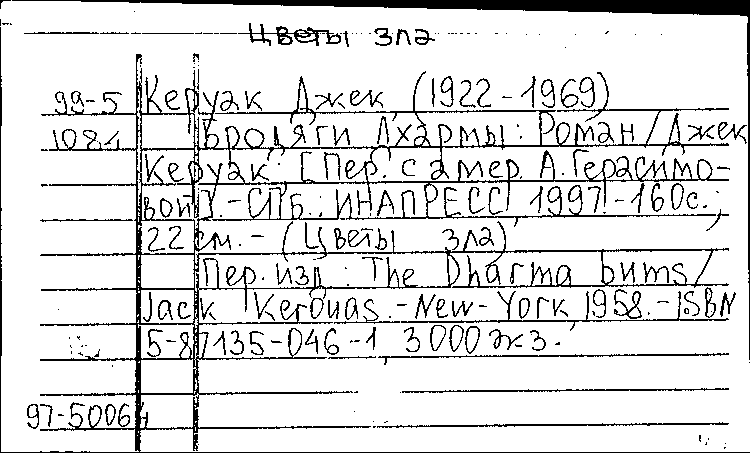 Цветы зла
99-5 Керуак Джек (1922-1969)
1084 Бродяги Дхармы: Роман/Джек
Керуак; [Пер. с амер. А. Герасимо-
вой]. - СПб.: ИНАПРЕСС, 1997. - 160с.;
22 см. - (Цветы зла)
Пер. изд.: The Dharma bums/
Jack Kerouas. - New-York, 1958. - ISBN
5-87135-046-1, 3000 экз.
97-50064